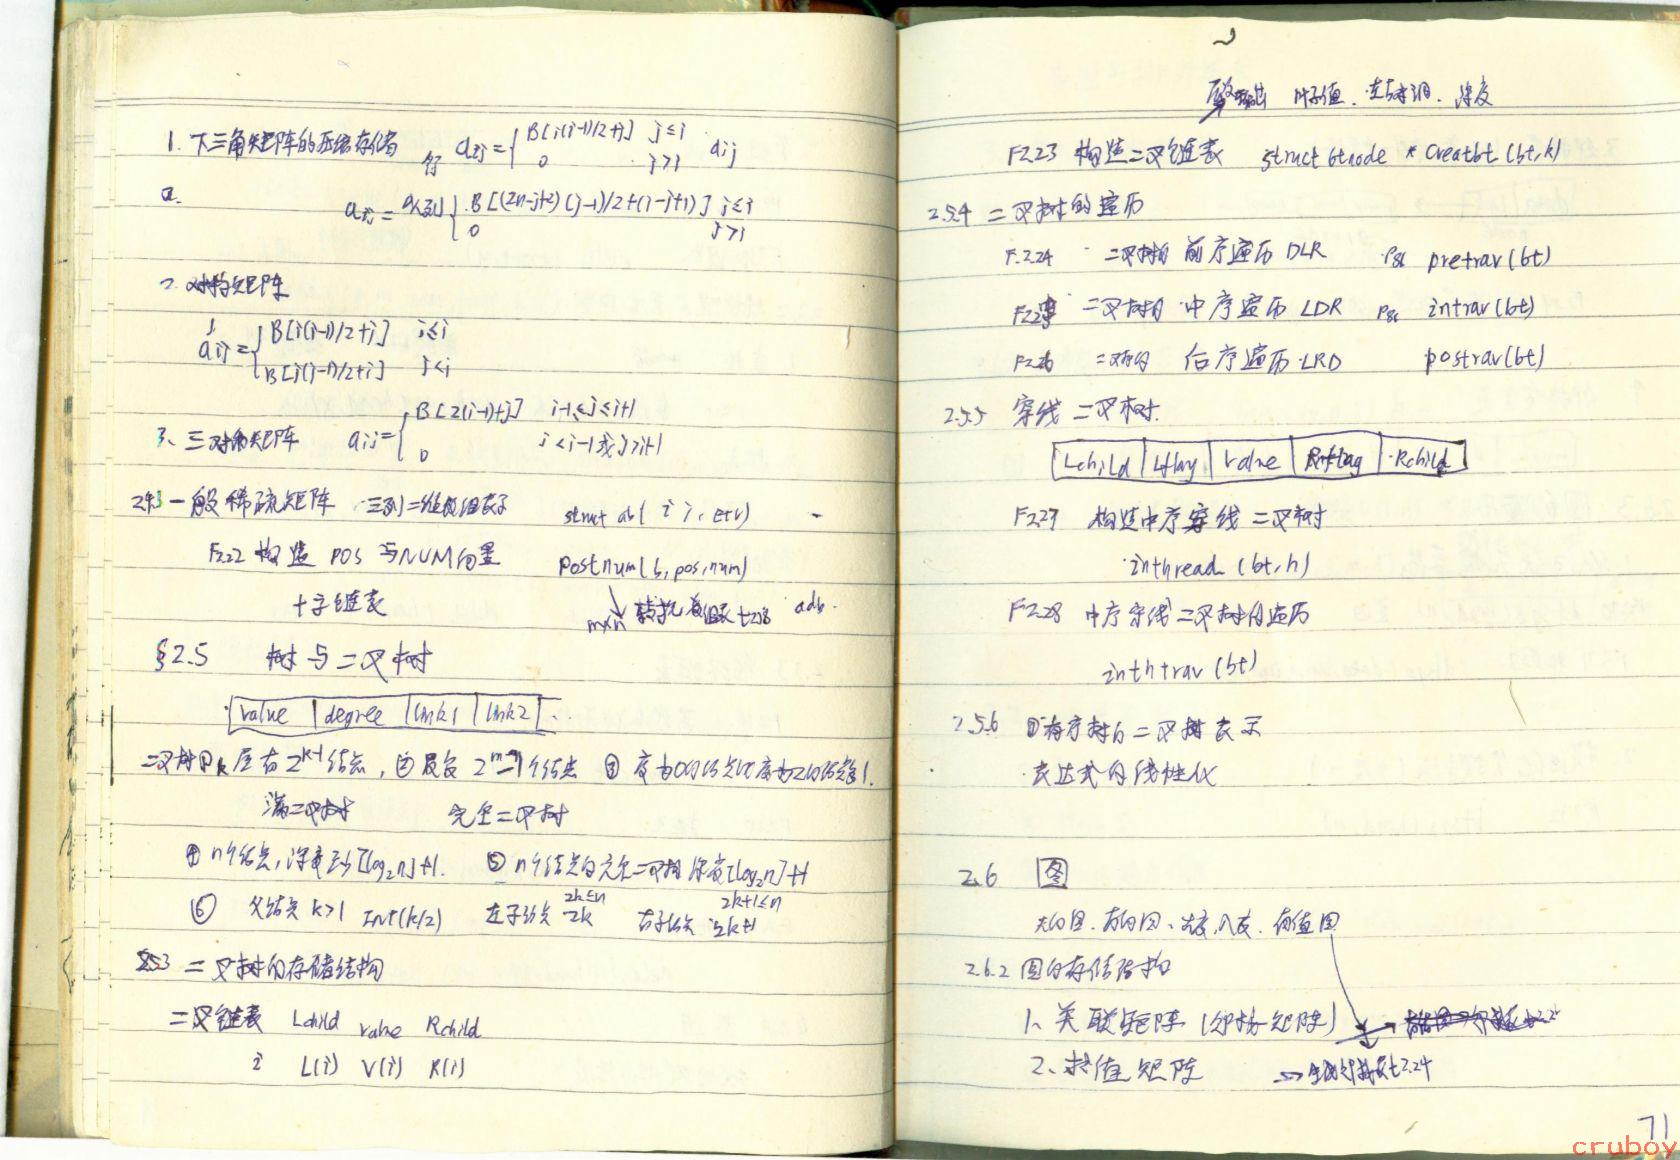 1. 下三角矩阵的压缩存储 行 aij = { B[i(i-1)/2+j] j≤i aij
0 j>i
aij = 列 { B[(2n-j+2)(j-1)/2+(i-j+1)] j≤i
0 j>i
2. 对称矩阵
aij = { B[i(i-1)/2+j] j≤i
B[j(j-1)/2+i] j<i
3、三对角矩阵 aij = { B[2(i-1)+j] i-1≤j≤i+1
0 j<i-1或j>i+1
2.4.3 一般稀疏矩阵 三列二维数组表示 struct ab( i j, e+v)
F2.22 构造 POS 与NUM向量 Postnum(b,pos,num)
十字链表 m×n 转换为
§2.5 树与二叉树
value degree link1 link2 ...
二叉树 ① k层有2^k-1结点, ② 2^m-1个结点 ③ 度为0的结点比度为2的结点多1.
满二叉树 完全二叉树
④ n个结点,深度至少[log2n]+1. ⑤ n个结点的完全二叉树深度[log2n]+1
⑥ 父结点 k>1 INT(k/2) 左子结点 2k≤n 2k 右子结点 2k+1≤n 2k+1
2.5.3 二叉树的存储结构
二叉链表 Lchild value Rchild
i L(i) V(i) R(i)
叶子值. 深度
F2.23 构造二叉链表 struct btnode * Creatbt (bt,k)
2.5.4 二叉树的遍历
F2.24 二叉树的 前序遍历 DLR P86 pretrav(bt)
F2.25 二叉树的 中序遍历 LDR P86 intrav(bt)
F2.26 二叉树的 后序遍历 LRD postrav(bt)
2.5.5 穿线二叉树.
Lchild Lflag value Rflag Rchild
F2.27 构造中序穿线二叉树
inthread (bt,h)
F2.28 中序穿线二叉树的遍历
inthtrav (bt)
2.5.6 ①有序树的二叉树表示
表达式的线性化
2.6 图
无向图. 有向图、出度、入度. 有值图
2.6.2 图的存储结构
1、关联矩阵 (邻接矩阵)
2、求值矩阵 t2.24
71
cruboy